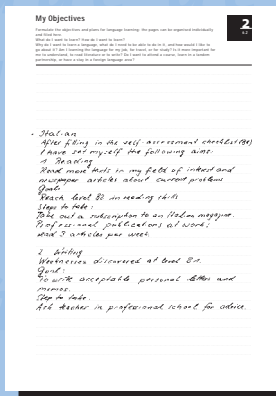 My Objectives
2
4.2
Formulate the objectives and plans for language learning: the pages can be organised individually and filed here.
What do I want to learn? How do I want to learn?
Why do I want to learn a language, what do I want to be able to do in it, and how would I like to go about it? Am I learning the language for my job, for travel, or for study? Is it more important for me to understand, to read literature or to write? Do I want to attend a course, learn in a tandem partnership, or have a stay in a foreign language area?
- Italian
After filling in the self-assessment checklist
I have set myself the following aims:
1 Reading
Read more texts in my field of interest and
newspaper articles about current problems
Goal:
Reach level B2 in reading skills
Steps to take:
Take out a subscription to an italian magazine.
Professional publications at work:
read 3 articles per week.
2 Writing
Weaknesses discovered at level B1.
Goal:
To write acceptable personal letters and
memos.
Step to take.
Ask teacher in professional school for advice.